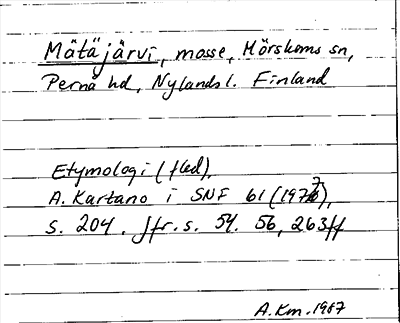 Mätäjärvi, mosse, Mörskoms sn,
Pernå hd, Nylands l. Finland
Etymologi (fled).
A. Kartano i SNF 61 (1977),
s. 204. Jfr. s. 54. 56, 263ff
A.Km. 1987